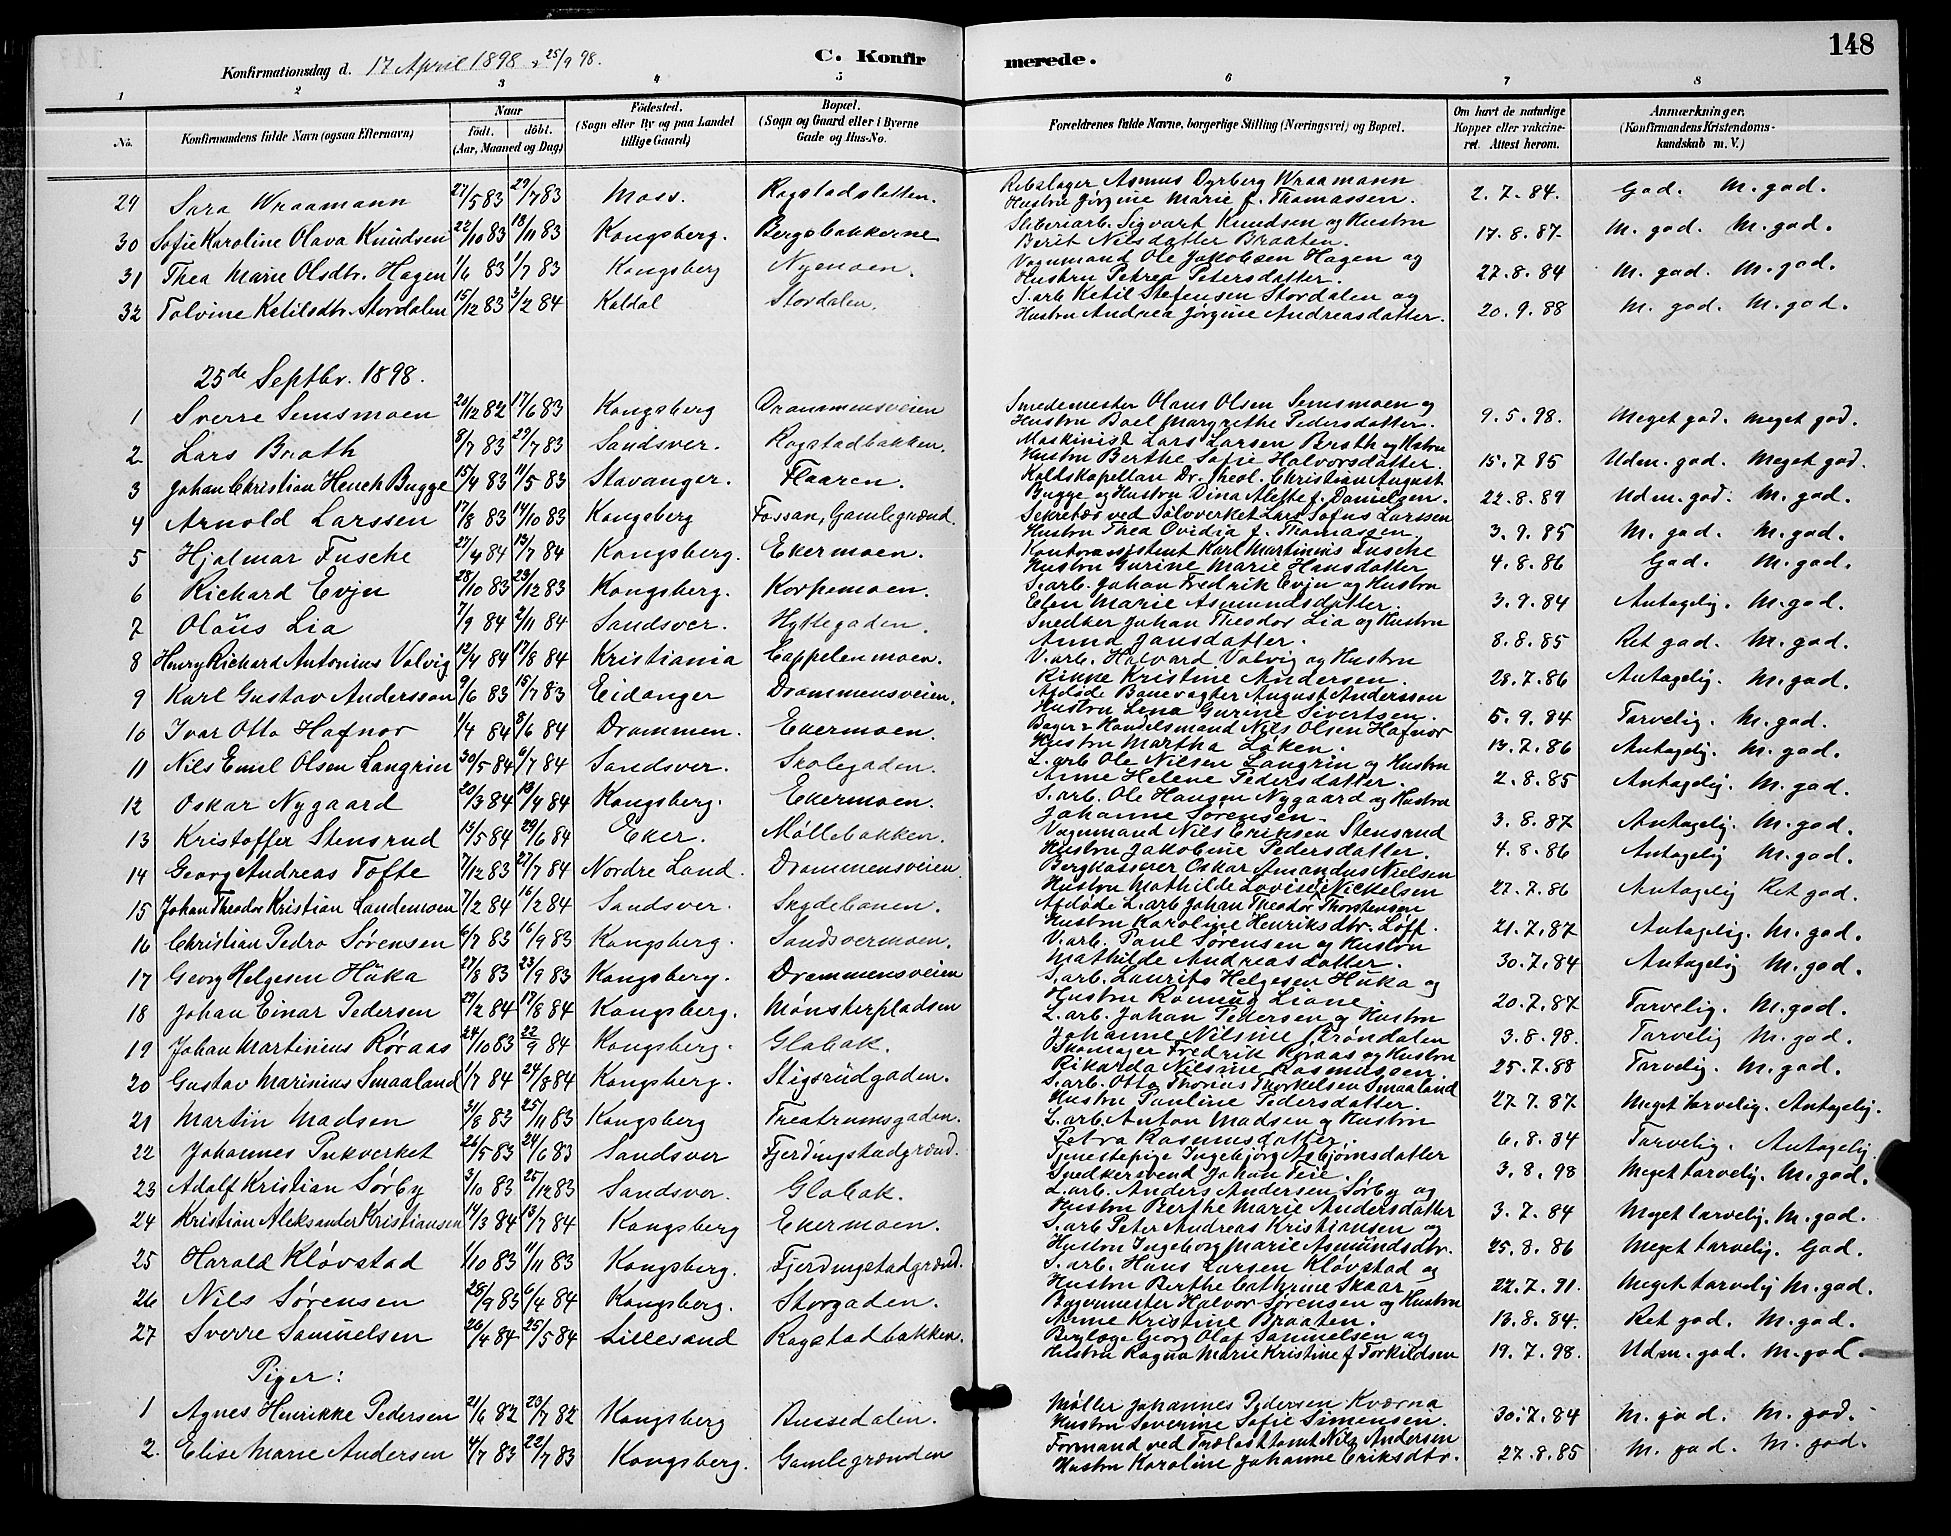 148
Konfirmationsdag d. 17 April 1898, 25/9 98.
C. Konfirmerede.
1 2 3 4 5 6 7 8
No.
Konfirmandens fulde Navn (ogsaa Efternavn)
Naar
födt. döbt.
(Aar, Maaned og Dag)
Födested.
(Sogn eller By og paa Landet
tillige Gaard)
Bopæl.
(Sogn og Gaard eller i Byerne
Gade og Hus-No.
Forældrenes fulde Navne, borgerlige Stilling (Næringsvei) og Bopæl.
Om havt de naturlige
Kopper eller vakcine-
ret. Attest herom.
Anmærkninger.
(Konfirmandens Kristendoms-
kundskab m. V.)
29 Sara Wraamann 27/5 83 29/7 83 Moss. Ragstadsletten. Rebslager Asmus Dyrberg Wraamann
Hustru Jørgine Marie f. Thomassen. 2.7.84. God. M. god.
30 Sofie Karoline Olava Knudsen 22/10 83 18/11 83 Kongsberg. Bergsbakkerne Sliberiarb. Sigvart Knudsen og Hustru
Berit Nilsdatter Braaten. 17.8.87. M. god. M. god.
31 Thea Marie Olsdtr. Hagen 1/6 83 1/7 83 Kongsberg Nyemoen. Vognmand Ole Jakobsen Hagen og
Hustru Petrea Petersdatter. 27.8.84 M. god. M. god.
32 Tolvine Ketilsdtr. Stordalen 15/12 83 3/2 84 Koldal Stordalen. S. arb. Ketil Stefensen Stordalen og
Hustru Andrea Jørgine Andreasdatter. 20.9.88 M. god. M. god.
25de Septbr. 1898.
1 Sverre Semsmoen 20/12 82 17/6 83 Kongsberg Drammensveien Smedemester Olaus Olsen Semsmoen og
Hustru Boel Margrethe Pedersdatter. 9.5.98. Meget god. Meget god.
2 Lars Brath 8/7 83 29/7 83 Sandsver. Ragstadbakken. Maskinist Lars Larsen Brath og
Hustru Berthe Sofie Halvorsdatter. 15.7 85 Udm. god. Meget god.
3 Johan Christian Heuch Bugge 15/4 83 11/5 83 Stavanger. Flaaren. Koldskapellan Dr. theol. Christian August
Bugge og Hustru Dina Alette f. Danielsen. 22.8.89 Udm. god. M. god.
4 Arnold Larssen 17/8 83 14/10 83 Kongsberg Fossan, Gamlegrænd. Sekretær ved Sølvverket Lars Sofus Larssen
Hustru Thea Ovidia f. Thomassen. 3.9.85 M. god. M. god.
5 Hjalmar Fusche 27/4 84 13/7 84 Kongsberg. Ekermoen. Kontorassistent Karl Martinius Fusche
Hustru Gurine Marie Hansdatter 4.8.86 God. M. god.
6 Richard Evju 28/10 83 23/12 83 Kongsberg. Korpemoen. S. arb. Johan Fredrik Evju og Hustru
Elen Marie Asmundsdatter. 3.9.84 Antagelig. M. god.
7 Olaüs Lia 7/9 84 2/11 84 Sandsver. Hyttegaden. Snedker Johan Theodor Lia og Hustru
Anna Jansdatter. 8.8.85 Ret god. M. god.
8 Henry Richard Antonius Valvig 12/4 84 17/8 84 Kristiania Cappelenmoen. V. arb. Halvard Valvig og Hustru
Rikke Kristine Andersen. 28.7.86 Antagelig. M. god.
9 Karl Gustav Andersson 9/6 83 15/7 83 Eidanger Drammensveien. Afdøde Banevagter August Andersson
Hustru Lena Gurine Sivertsen. 5.9.84 Tarvelig. M. god.
10 Ivar Otto Hafnor 1/4 84 8/6 84 Drammen. Ekermoen. Bager & Handelsmand Nils Olsen Hafnor
Hustru Martha Løken. 13.7.86 Antagelig. M. god.
11 Nils Emil Olsen Langrin 30/5 84 6/7 84 Sandsver. Skolegaden. L. arb. Ole Nilsen Langrin og Hustru
Anne Helene Pedersdatter. 2.8.85 Antagelig. M. god.
12 Oskar Nygaard 20/3 84 /4 84 Kongsberg. Ekermoen. S. arb. Ole Hansen Nygaard og Hustru
Johanne Sørensen. 3.8.87 Antagelig. M. god.
13 Kristoffer Stensrud 15/5 84 29/6 84 Eker. Møllebakken. Vognmand Nils Eriksen Stensrud
Hustru Jakobine Pedersdatter. 4.8.86 Antagelig M. god.
14 Georg Andreas Tofte 7/12 83 27/7 84 Nordre Land. Drammensveien Bergkasserer Oskar Amandus Nielsen
Hustru Mathilde Lovise f. Nickelsen 22.7.86 Antagelig Ret god.
15 Johan Theodor Kristian Landemoen 7/2 84 16/2 84 Sandsver. Skydebanen. Afdøde L. arb. Johan Theodor Thorstensen
Hustru Karoline Henriksdtr. Løff. 21.7.87 Antagelig. M. god.
16 Christian Pedro Sørensen 6/7 83 16/9 83 Kongsberg. Sandsvermoen. V. arb. Paul Sørensen og Hustru
Mathilde Andreasdatter. 30.7.84 Antagelig M. god.
17 Georg Helgesen Hüka 27/8 83 23/9 83 Kongsberg. Drammensveien S. arb. Laurits Helgesen Hüka og
Hustru Rønnug Liane. 20.7.87 Tarvelig. M. god.
18 Johan Einar Pedersen 29/2 84 17/8 84 Kongsberg. Mønsterpladsen L. arb. Johan Pedersen og Hustru
Johanne Nilsine Brøndalen 3.8.98. Tarvelig M. god.
19 Johan Martinius Røraas 24/10 83 22/9 84 Kongsberg. Glabak. Skomager Fredrik Røraas og Hustru
Rikarda Nilsine Rasmussen. 25.7.88 Tarvelig. M. god.
20 Gustav Marinius Smaaland 1/7 84 24/8 84 Kongsberg. Stigsrudgaden. S. arb. Otto Thonius Thorkelsen Smaaland
Hustru Pauline Pedersdatter. 27.7.87. Meget tarvelig. Antagelig.
21 Martin Madsen 31/8 83 25/11 83 Kongsberg Treatrumsgaden. L. arb. Anton Madsen og Hustru
Petra Rasmusdatter. 6.8.84 Tarvelig. Antagelig.
22 Johannes Pukverket 26/5 83 24/6 83 Sandsver Fjerdingstadgrænd. Tjenestepige Ingebjørg Asbjørnsdatter
Snedkersvend Johan Teie. 3.8.98 Meget tarvelig. M. god.
23 Adolf Kristian Sørby 3/10 83 25/12 83 Sandsver. Glabak. L. arb. Anders Andersen Sørby og
Hustru Berthe Marie Andersdatter 3.7.84 Meget tarvelig. M. god.
24 Kristian Aleksander Kristiansen 14/3 84 13/7 84 Kongsberg Ekermoen. S. arb. Peter Andreas Kristiansen og
Hustru Ingeborg Marie Asmundsdtr. 25.8.86 Meget tarvelig. God.
25 Harald Kløvstad 1/10 83 11/11 83 Kongsberg. Fjerdingstadgrænd. S. arb. Hans Larsen Kløvstad og
Hustru Berthe Cathrine Skaar 22.7.91. Meget tarvelig M. god.
26 Nils Sørensen 28/9 83 6/4 84 Kongsberg. Storgaden. Bagermester Halvor Sørensen og Hustru
Anne Kristine Braaten. 18.8.84. Ret god. M. god.
27 Sverre Samuelsen 26/4 84 25/5 84 Lillesand Ragstadbakken. Berglæge Georg Olaf Samuelsen og
Hustru Ragna Marie Kristine f. Torkildsen 19.7.98. Udm. god. M. god.
Piger:
1 Agnes Henrikke Pedersen 21/6 82 23/7 82 Kongsberg Bussedalen. Møller Johannes Pedersen Kværna
Hustru Severine Sofie Simensen. 30.7.84 M. god. M. god.
2. Elise Marie Andersen 4/7 83 22/7 83 Kongsberg. Gamlegrænden Formand ved Trælasttomt Nils Andersen
Hustru Karoline Johanne Eriksdtr. 27.8.85 M. god. M. god.